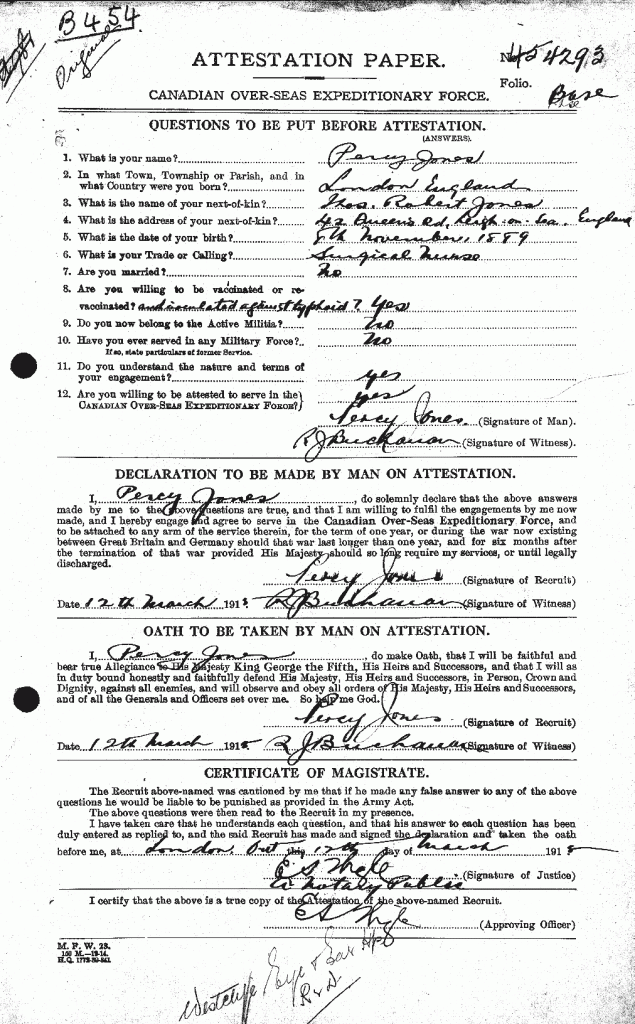 B 454
Original
ATTESTATION PAPER.
No. 454293
Folio.
Base
CANADIAN OVER-SEAS EXPEDITIONARY FORCE.
QUESTIONS TO BE PUT BEFORE ATTESTATION.
(ANSWERS).
1. What is your name? Percy Jones
2. In what Town, Township or Parish, and in
what Country were you born? London England
3. What is the name of your next-of-kin? Thos. Robert Jones
4. What is the address of your next-of-kin? 42 Queen's Rd. Leigh-on-Sea. England
5. What is the date of your birth? 8th November, 1889
6. What is your Trade or Calling? Surgical Nurse
7. Are you married? No
8. Are you willing to be vaccinated or re-
vaccinated? and inoculated against typhoid? Yes
9. Do you now belong to the Active Militia? No
10. Have you ever served in any Military Force? No
If so, state particulars of former Service.
11. Do you understand the nature and terms of
your engagement? yes
12. Are you willing to be attested to serve in the
CANADIAN OVER-SEAS EXPEDITIONARY FORCE? yes
Percy Jones (Signature of Man).
R J Buchanan (Signature of Witness).
DECLARATION TO BE MADE BY MAN ON ATTESTATION.
I, Percy Jones, do solemnly declare that the above answers
made by me to the above questions are true, and that I am willing to fulfil the engagements by me now
made, and I hereby engage and agree to serve in the Canadian Over-Seas Expeditionary Force, and
to be attached to any arm of the service therein, for the term of one year, or during the war now existing
between Great Britain and Germany should that war last longer than one year, and for six months after
the termination of that war provided His Majesty should so long require my services, or until legally
discharged.
Percy Jones (Signature of Recruit)
Date 12th March 1915 R J Buchanan (Signature of Witness)
OATH TO BE TAKEN BY MAN ON ATTESTATION.
I, Percy Jones, do make Oath, that I will be faithful and
bear true Allegiance to His Majesty King George the Fifth, His Heirs and Successors, and that I will as
in duty bound honestly and faithfully defend His Majesty, His Heirs and Successors, in Person, Crown and
Dignity, against all enemies, and will observe and obey all orders of His Majesty, His Heirs and Successors,
and of all the Generals and Officers set over me. So help me God.
Percy Jones (Signature of Recruit)
Date 12th March 1915 R J Buchanan (Signature of Witness)
CERTIFICATE OF MAGISTRATE.
The Recruit above-named was cautioned by me that if he made any false answer to any of the above
questions he would be liable to be punished as provided in the Army Act.
The above questions were then read to the Recruit in my presence.
I have taken care that he understands each question, and that his answer to each question has been
duly entered as replied to, and the said Recruit has made and signed the declaration and taken the oath
before me, at London, Ont this 12th day of March 1915
(Signature of Justice)
Notary Public
I certify that the above is a true copy of the Attestation of the above-named Recruit.
(Approving Officer)
M. F. W. 23.
H.Q. 1772-39-841.
Westcliffe Eye & Ear